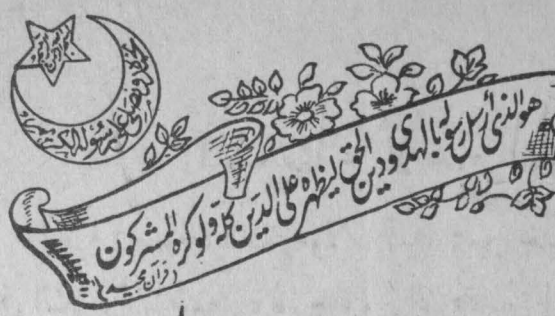 نحمده ونصلی علی رسوله الکریم
هو الذی أرسل رسوله بالهدی ودین الحق لیظهره علی الدین کله ولو کره المشرکون
(قرآن مجید)